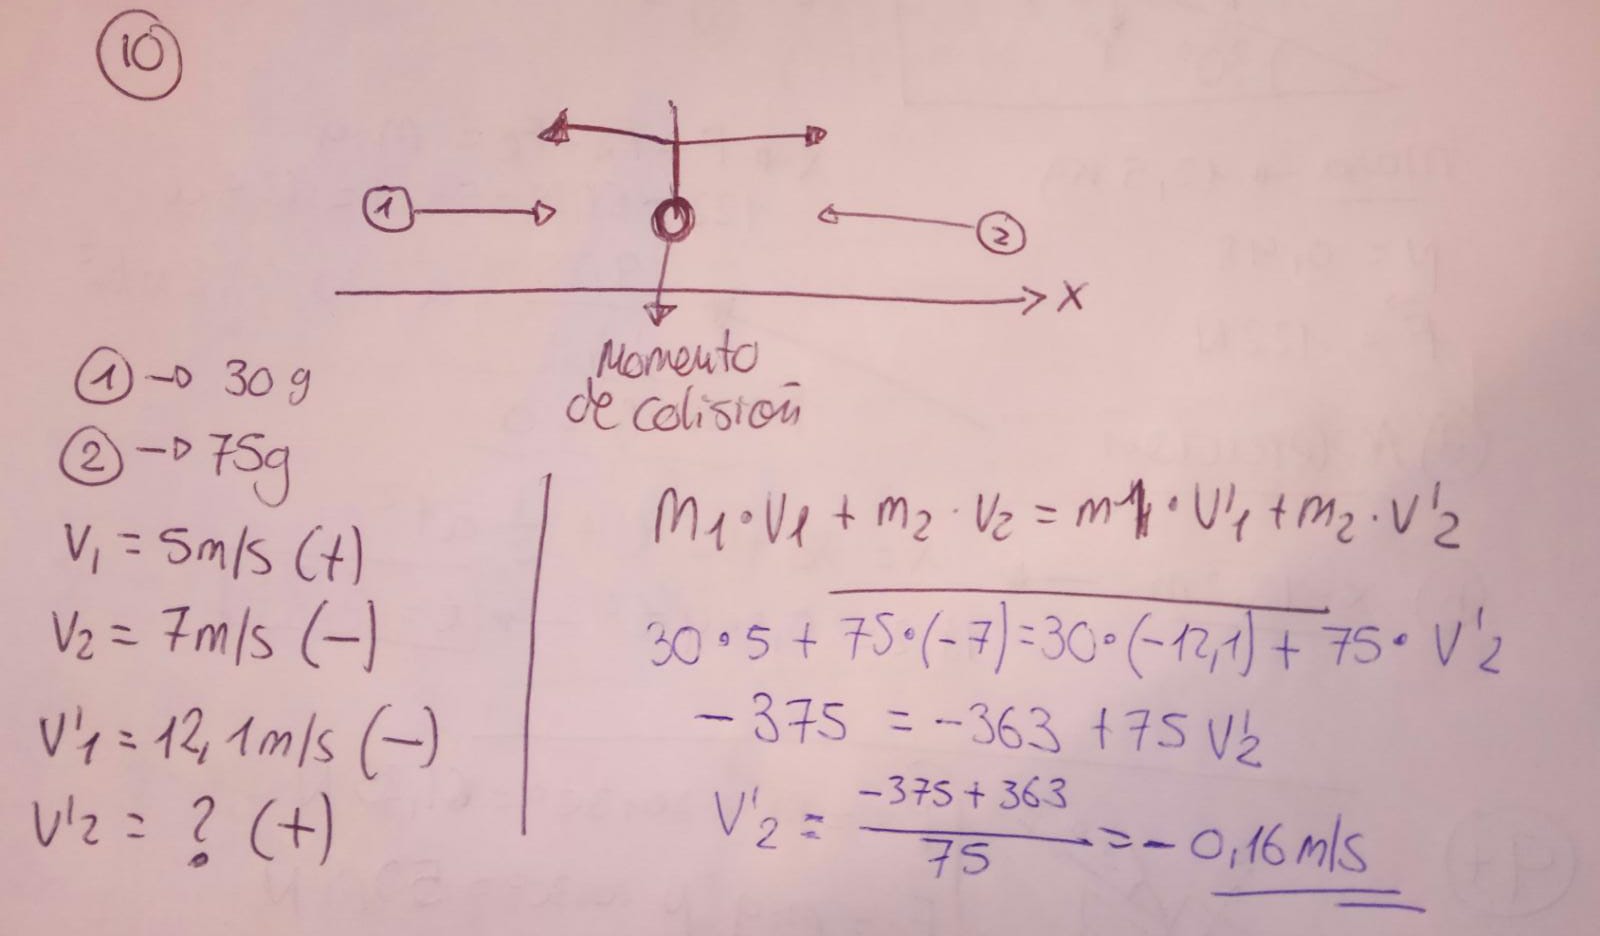 10
1
2
x
Momento
de colisión
1 → 30 g
2 → 75g
V₁ = 5m/s (+)
V₂ = 7m/s (-)
V'₁ = 12,1m/s (-)
V'₂ = ? (+)
m₁·V₁ + m₂·V₂ = m₁·V'₁ + m₂·V'₂
30·5 + 75·(-7) = 30·(-12,1) + 75·V'₂
-375 = -363 + 75 V'₂
V'₂ = (-375 + 363) / 75 = -0,16 m/s